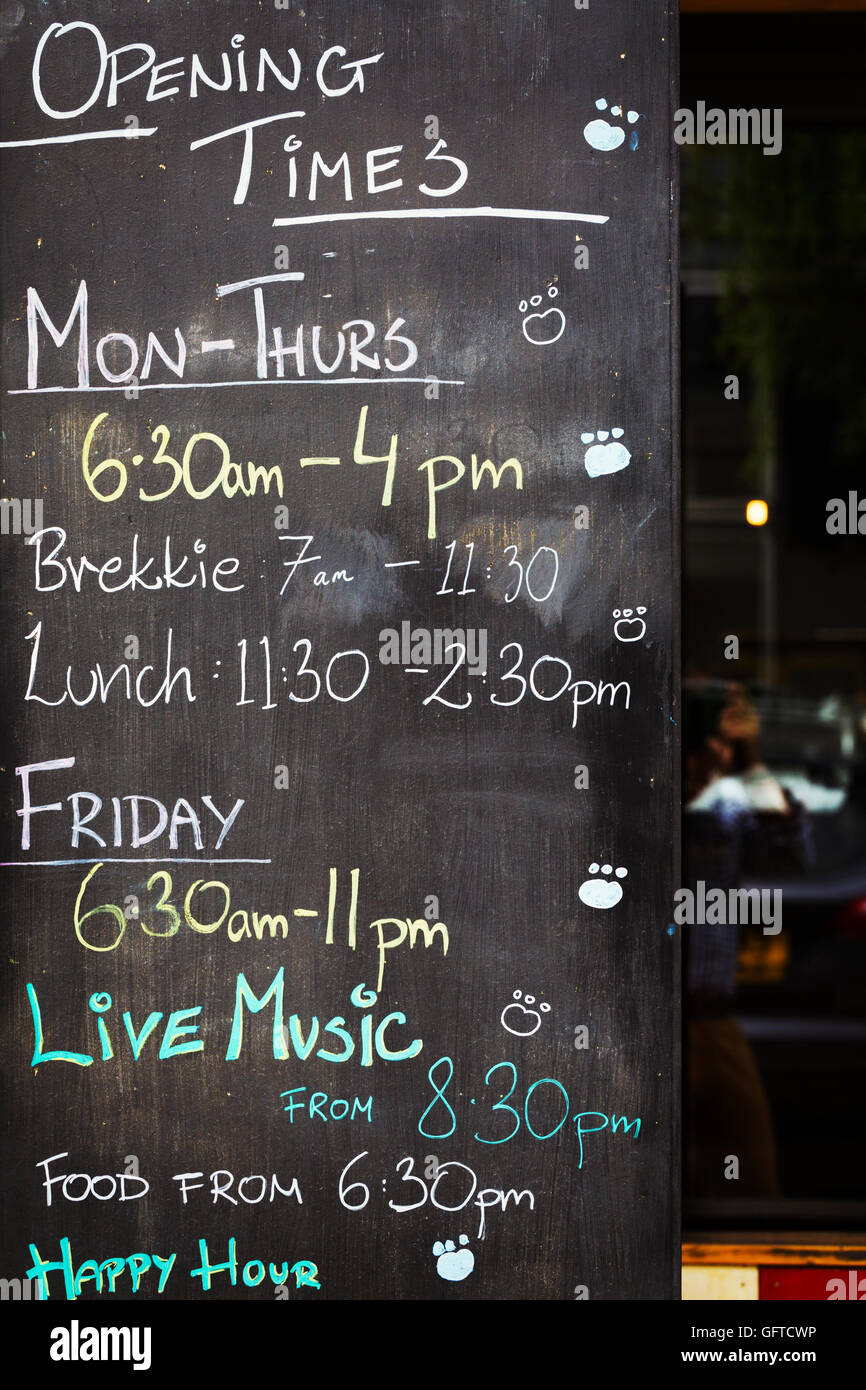 OPENING
TIMES
MON-THURS
6:30am - 4pm
Brekkie : 7am - 11:30
Lunch : 11:30 - 2:30pm
FRIDAY
6:30am - 11pm
LIVE MUSIC
FROM 8:30pm
FOOD FROM 6:30pm
HAPPY HOUR
alamy stock photo
GFTCWP
www.alamy.com